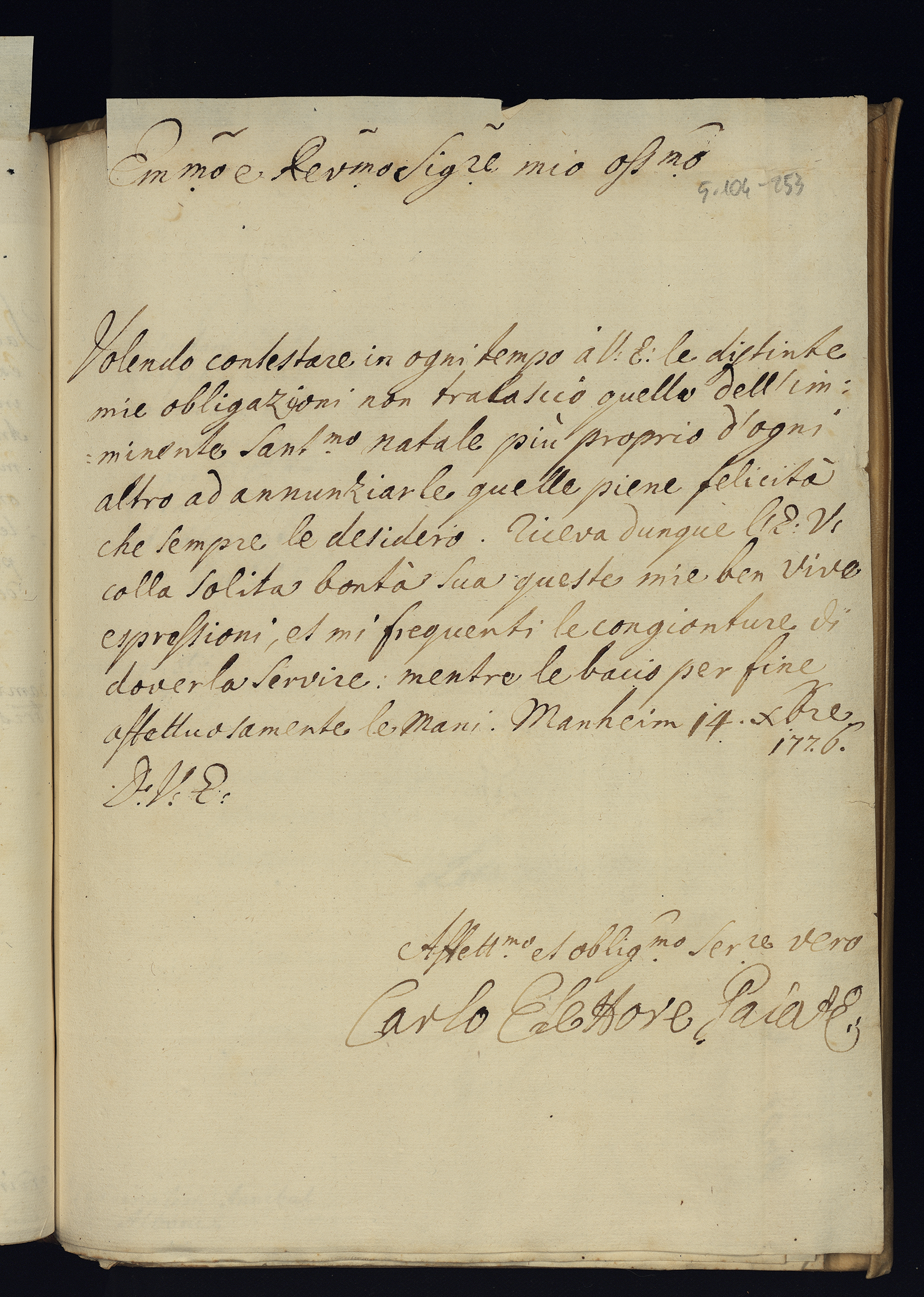 Em̃mo e Reṽmo Sig.re mio oss.mo
g. 104-253
Volendo contestare in ogni tempo à V: E: le distinte
mie obligazioni non tralascio quella dell'im:
=minente Sant.mo natale più proprio d'ogni
altro ad annunziarle quelle piene felicità
che sempre le desidero. riceva dunque l'E: V:
colla solita bontà sua queste mie ben vive
espressioni, et mi frequenti le congionture di
doverla servire: mentre le bacio per fine
affettuosamente le mani. Manheim 14. xbre
1726.
D: V: E:
Affett.mo et oblig.mo ser.re vero
Carlo Elettore